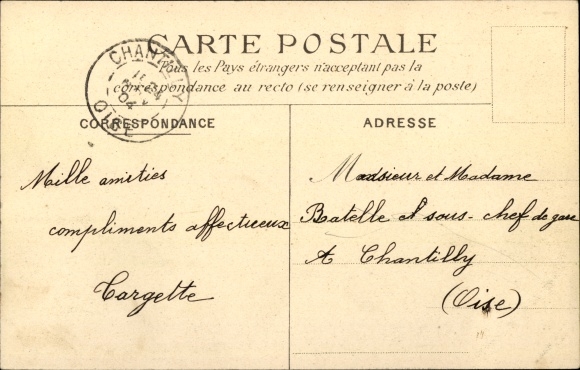 CARTE POSTALE
Tous les Pays étrangers n'acceptant pas la
correspondance au recto (se renseigner à la poste)
CHANTILLY
04
OISE
CORRESPONDANCE
Mille amitiés
compliments affectueux
Targette
ADRESSE
Monsieur et Madame
Batelle sous-chef de gare
A Chantilly
(Oise)